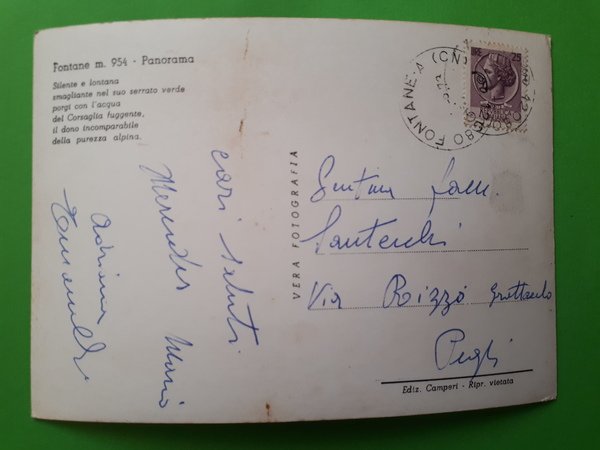 Fontane m. 954 - Panorama
Silente e lontana
smagliante nel suo serrato verde
porgi con l'acqua
del Corsaglia fuggente,
il dono incomparabile
della purezza alpina.
cari saluti.
Mercedes Mario
Adriana
VERA FOTOGRAFIA
Via Rizzo
Pegli
Ediz. Camperi - Ripr. vietata
FONTANE (CN)
25